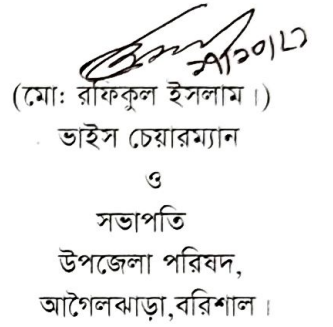 (মো: রফিকুল ইসলাম।)
ভাইস চেয়ারম্যান
ও
সভাপতি
উপজেলা পরিষদ,
আগৈলঝাড়া,বরিশাল।